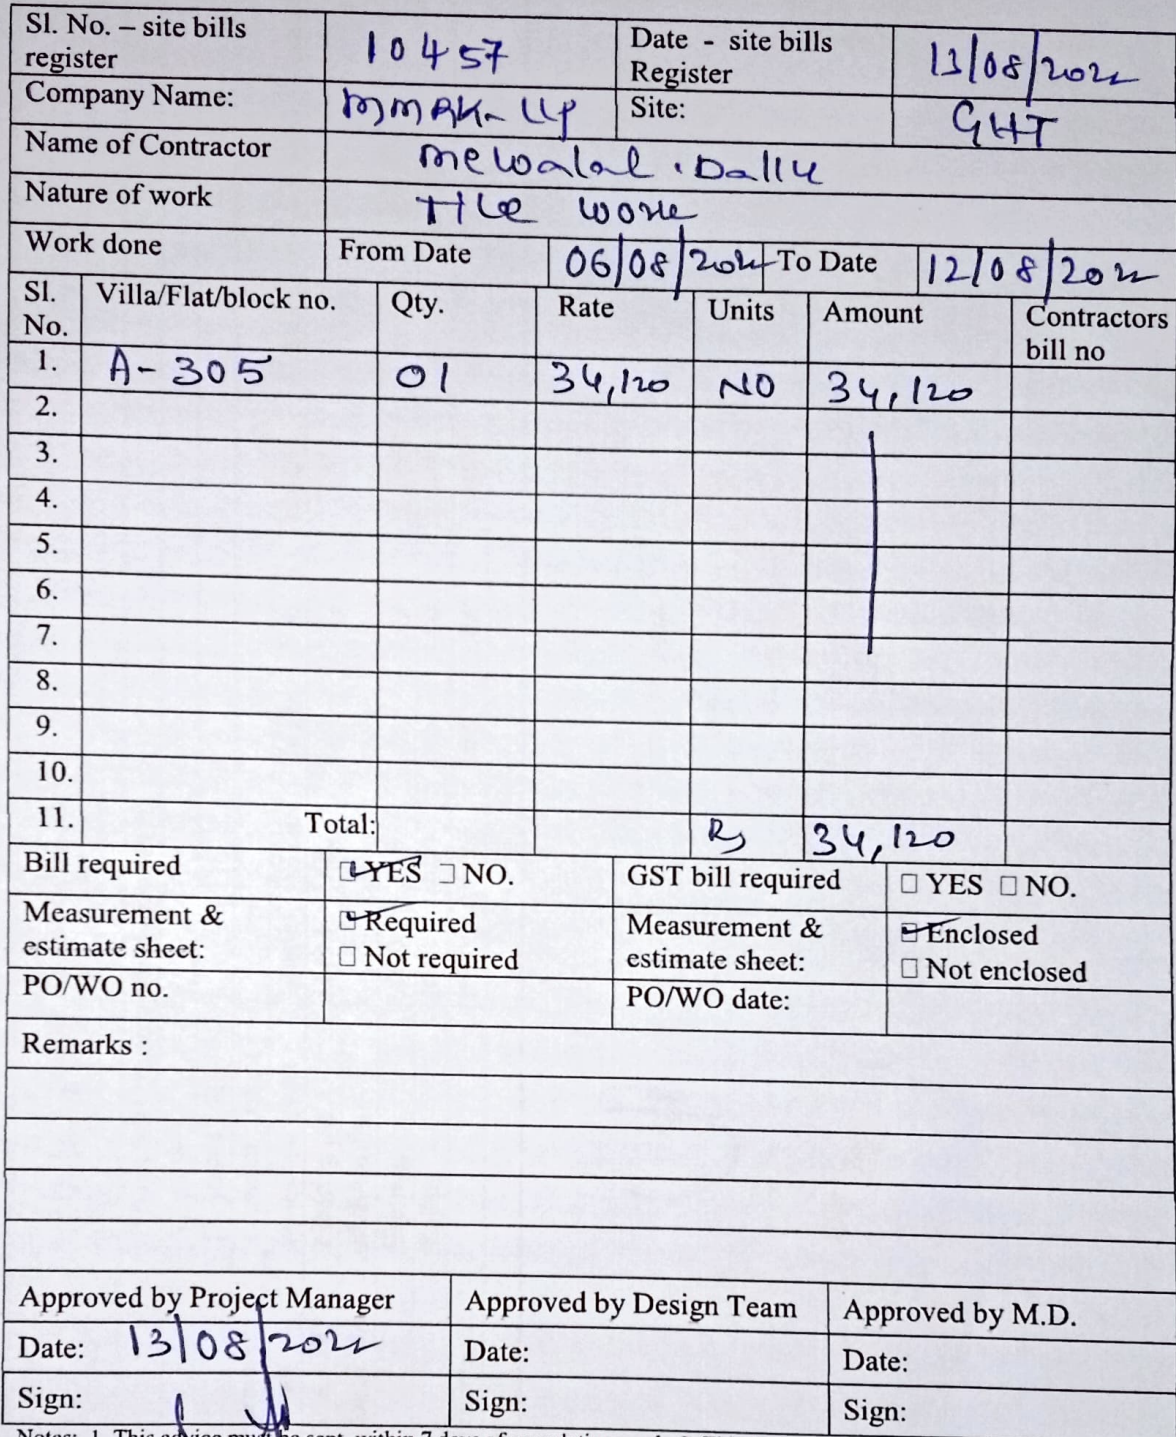 Sl. No. – site bills register 10457 Date - site bills Register 13/08/2022
Company Name: MMRK-LLP Site: GHT
Name of Contractor Mewalal . Dallu
Nature of work Tile work
Work done From Date 06/08/2022 To Date 12/08/2022
Sl. No. Villa/Flat/block no. Qty. Rate Units Amount Contractors bill no
1. A-305 01 34,120 NO 34,120
2.
3.
4.
5.
6.
7.
8.
9.
10.
11. Total: Rs 34,120
Bill required YES NO. GST bill required YES NO.
Measurement & estimate sheet: Required Not required Measurement & estimate sheet: Enclosed Not enclosed
PO/WO no. PO/WO date:
Remarks :
Approved by Project Manager Approved by Design Team Approved by M.D.
Date: 13/08/2022 Date: Date:
Sign: Sign: Sign: